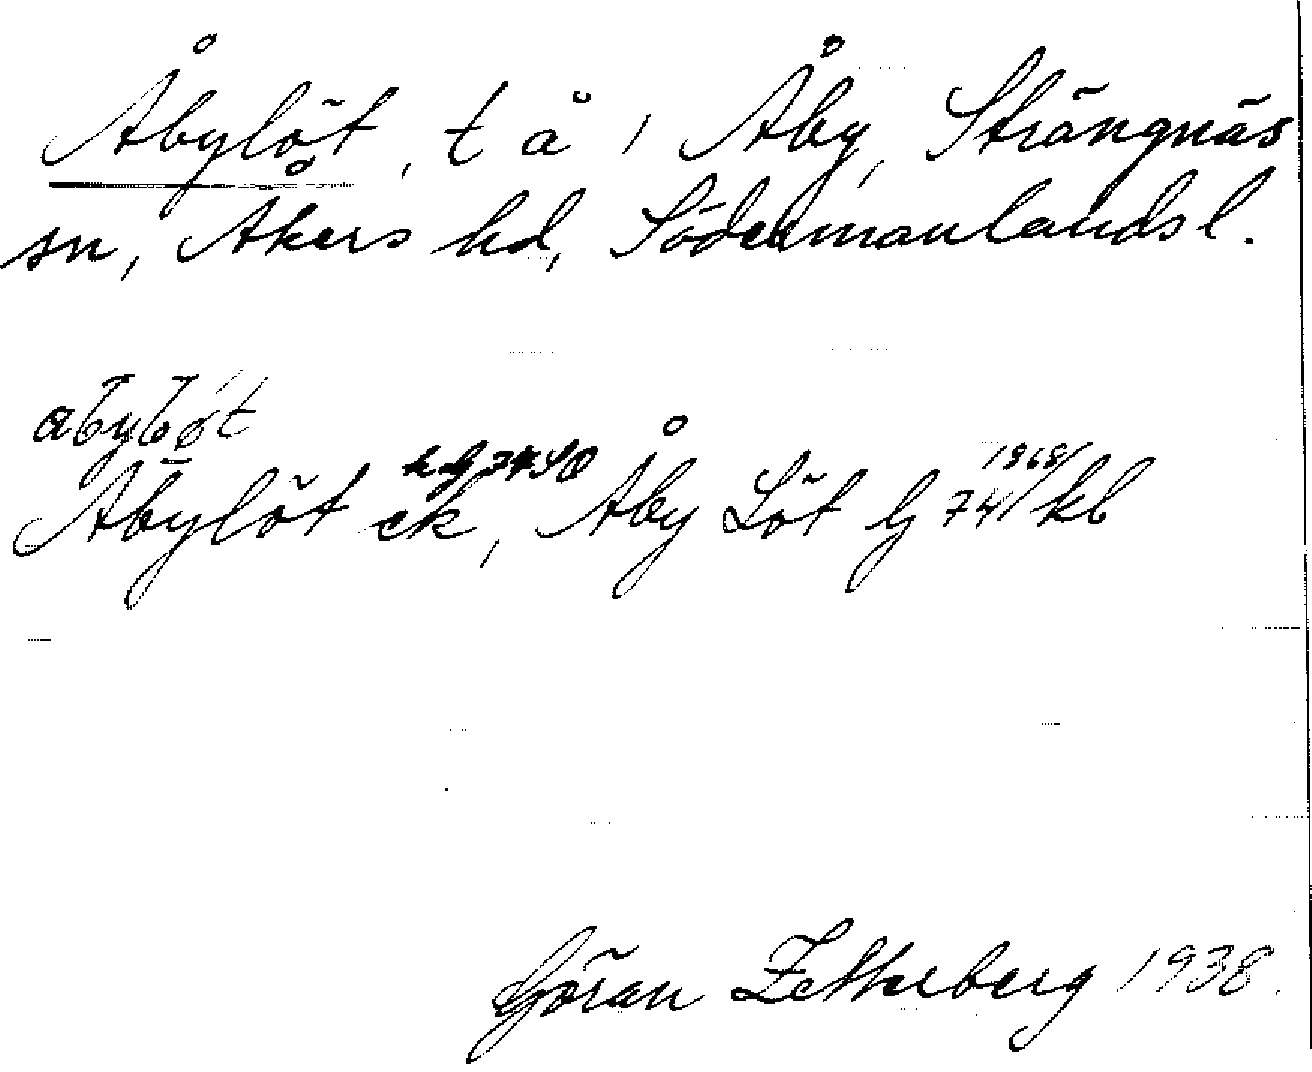 Åbylöt, t å 1 Åby, Strängnäs
sn, Åkers hd, Södermanlands l.
Åbylöt ek, Åby Löt G 74 1968/ kb
Göran Zetterberg 1938.